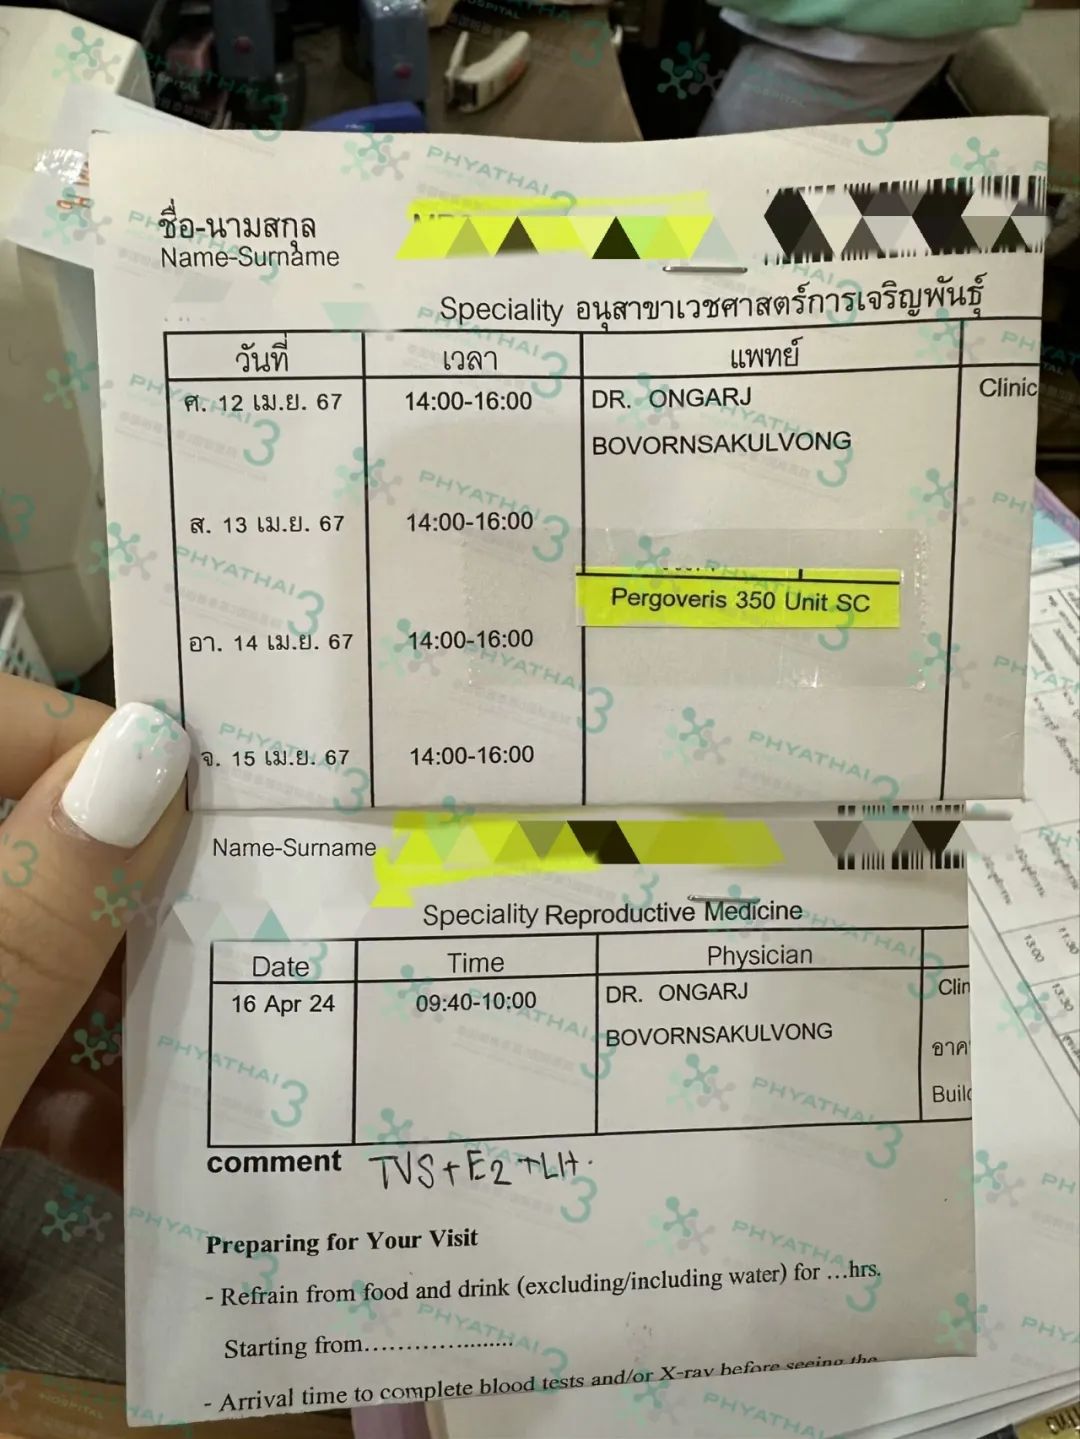 ชื่อ-นามสกุล
Name-Surname
Speciality อนุสาขาเวชศาสตร์การเจริญพันธุ์
วันที่ เวลา แพทย์
ศ. 12 เม.ย. 67 14:00-16:00 DR. ONGARJ Clinic
BOVORNSAKULVONG
ส. 13 เม.ย. 67 14:00-16:00
Pergoveris 350 Unit SC
อา. 14 เม.ย. 67 14:00-16:00
จ. 15 เม.ย. 67 14:00-16:00
Name-Surname
Speciality Reproductive Medicine
Date Time Physician
16 Apr 24 09:40-10:00 DR. ONGARJ
BOVORNSAKULVONG
comment TVS+E2+LH.
Preparing for Your Visit
- Refrain from food and drink (excluding/including water) for ...hrs.
Starting from......................
- Arrival time to complete blood tests and/or X-ray before seeing the
PHYATHAI 3
HOSPITAL